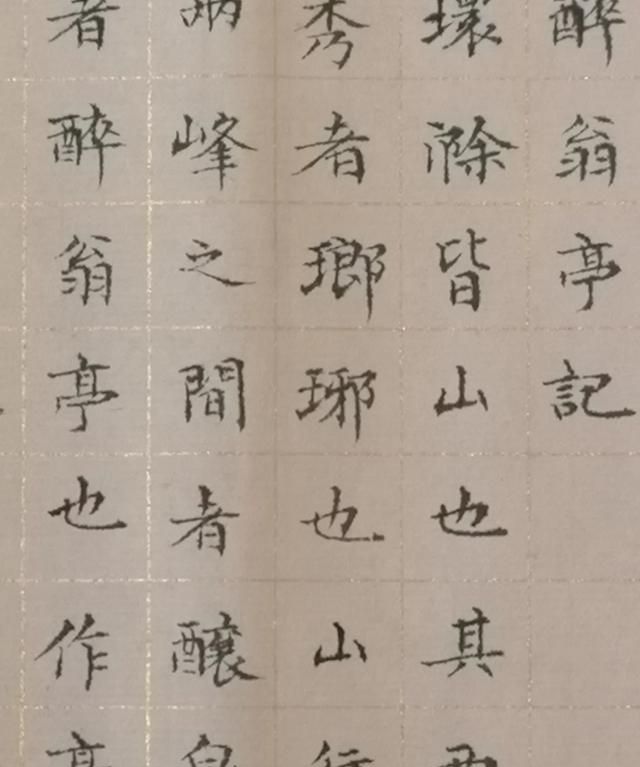 醉翁亭記
環滁皆山也其西
秀者瑯琊也山行
峰之間者釀泉
者醉翁亭也作亭